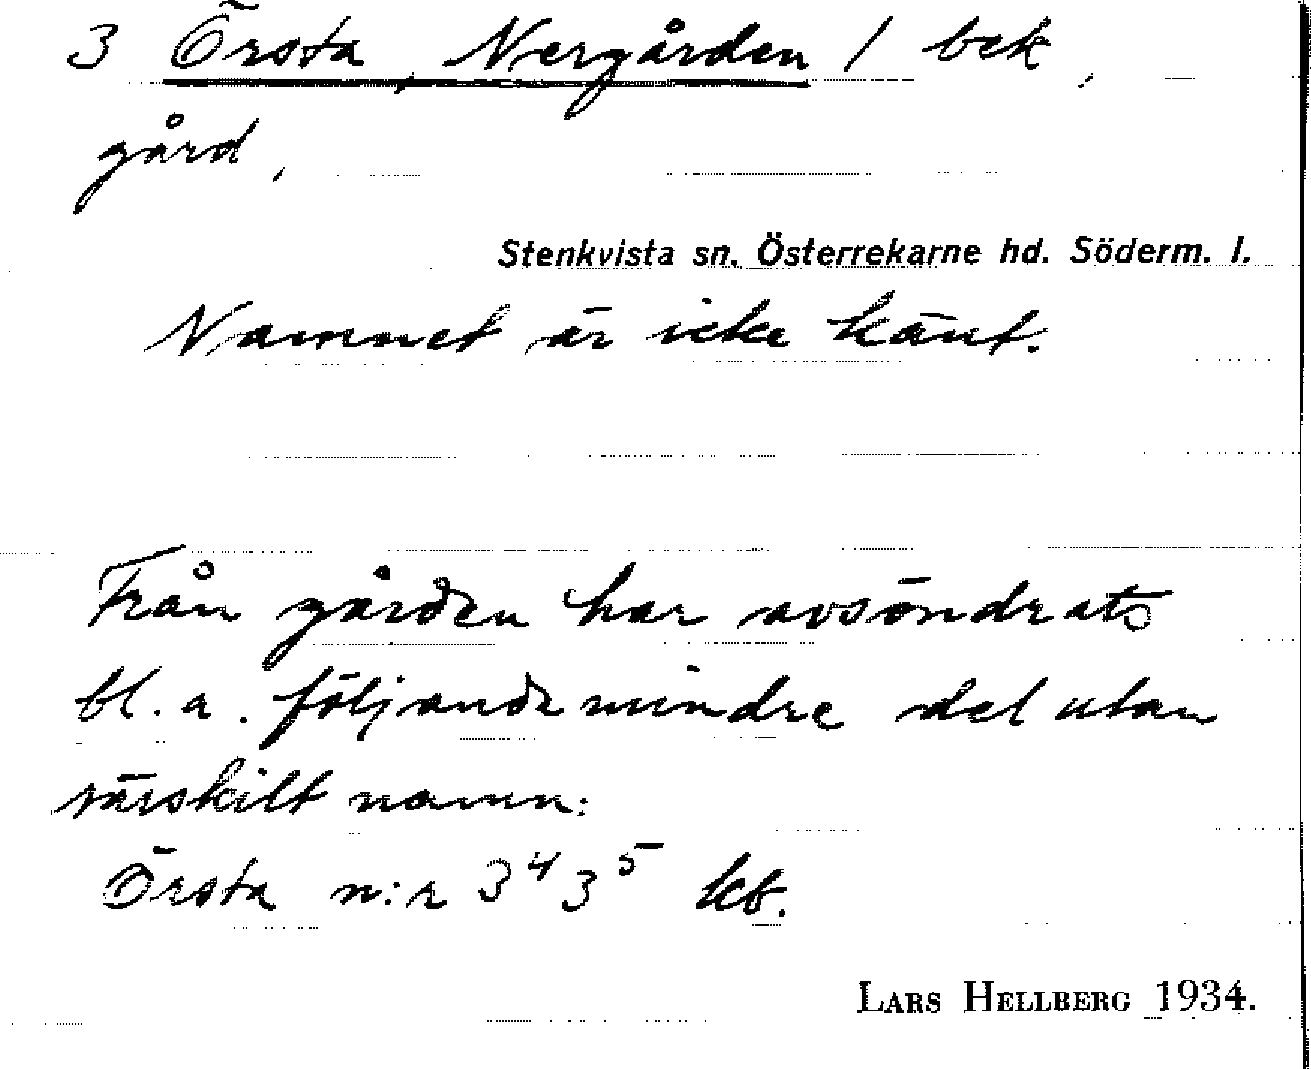 3 Örsta, Nergården / bek,
gård,
Stenkvista sn. Österrekarne hd. Söderm. l.
Namnet är icke känt.
Från gården har avsöndrats
bl. a. följande mindre del utan
särskilt namn:
Örsta n:r 3⁴ 3⁵ kb.
LARS HELLBERG 1934.